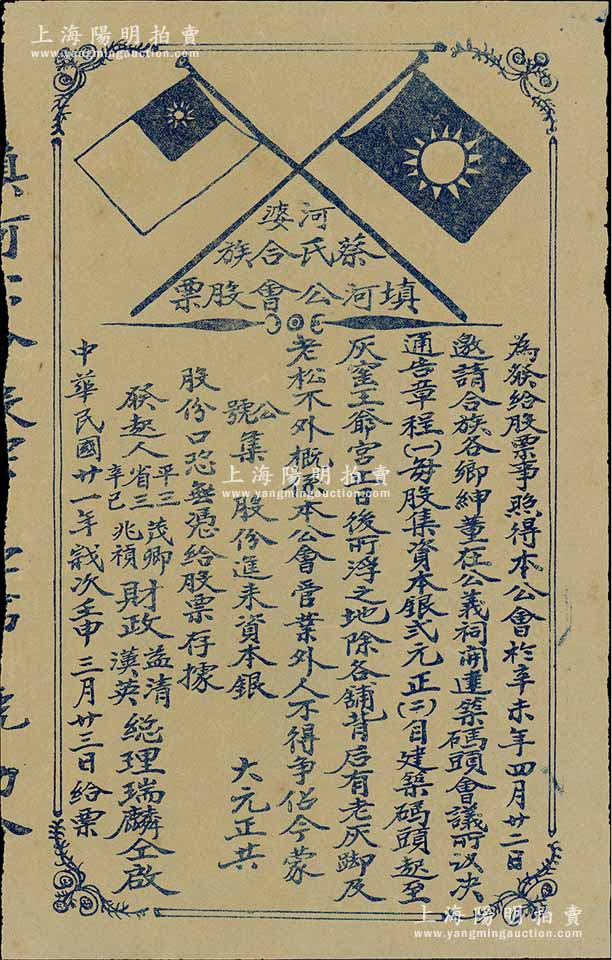 上海陽明拍賣
www.yangmingauction.com
河婆
蔡氏合族
填河公會股票
為發給股票事照得本公會於辛未年四月廿二日
邀請合族各鄉紳董在公義祠開建築碼頭會議所议决
通告章程(一)每股集資本銀弍元正(二)自建築碼頭起至
灰窰王爺宮止日後所浮之地除各舖背后有老灰脚及
老松不外概係本公會營業外人不得争佔今蒙
公號集 股份進来資本銀 大元正共
股份口恐無憑給股票存據
發起人 平三 省三 辛己 茂卿 兆禎 財政 益清 漢英 总理瑞麟仝啟
中華民國廿一年歲次壬申三月廿三日給票
上海陽明拍賣
www.yangmingauction.com
上海陽明拍賣
www.yangmingauction.com